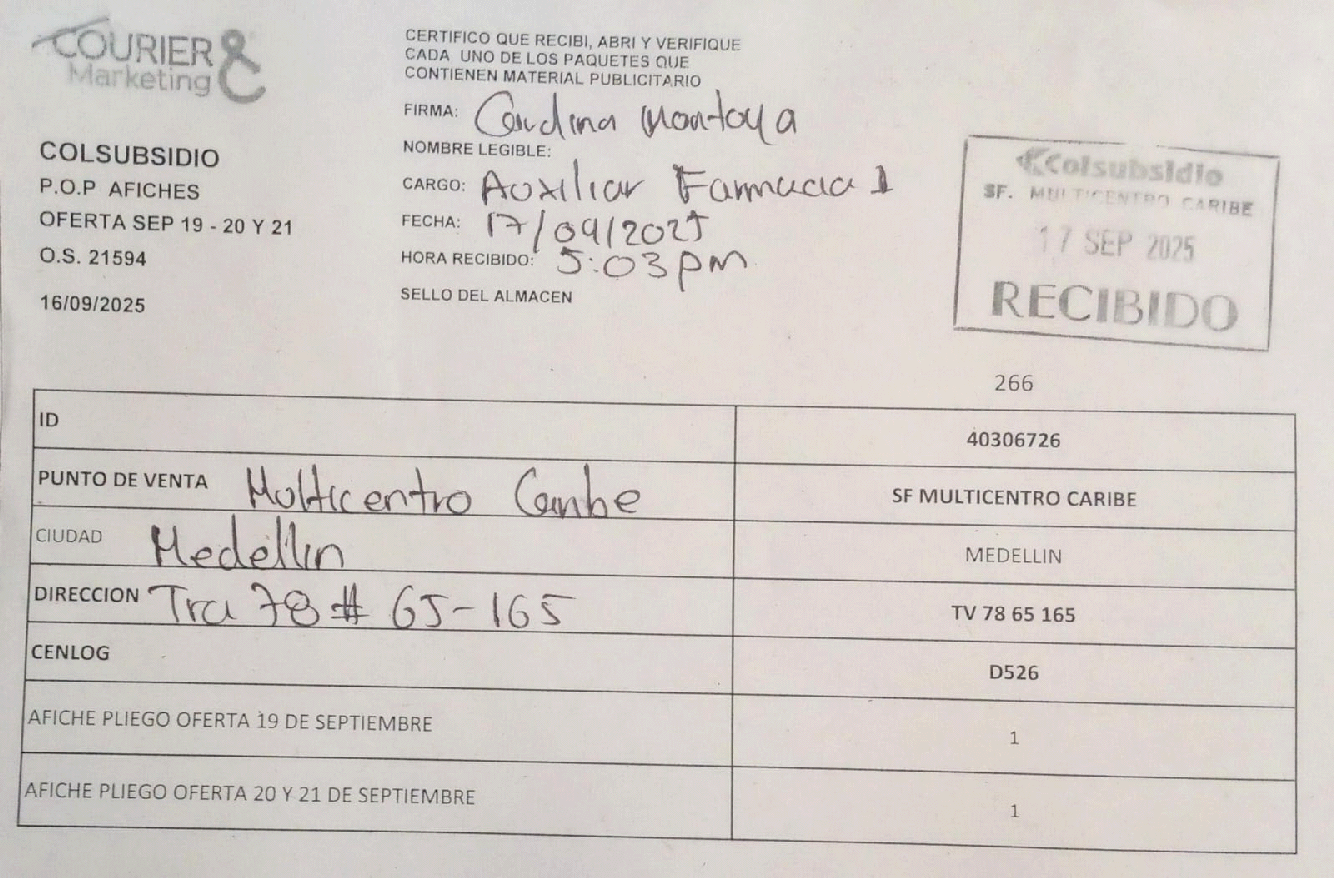 COURIER &
Marketing
COLSUBSIDIO
P.O.P AFICHES
OFERTA SEP 19 - 20 Y 21
O.S. 21594
16/09/2025
CERTIFICO QUE RECIBI, ABRI Y VERIFIQUE
CADA UNO DE LOS PAQUETES QUE
CONTIENEN MATERIAL PUBLICITARIO
FIRMA: Montoya
NOMBRE LEGIBLE:
CARGO: Auxiliar Farmacia 1
FECHA: 17/09/2025
HORA RECIBIDO: 5:03pm
SELLO DEL ALMACEN
Colsubsidio
SF. MULTICENTRO CARIBE
17 SEP 2025
RECIBIDO
266
ID 40306726
PUNTO DE VENTA Multicentro Caribe SF MULTICENTRO CARIBE
CIUDAD Medellin MEDELLIN
DIRECCION Tra 78 # 65-165 TV 78 65 165
CENLOG D526
AFICHE PLIEGO OFERTA 19 DE SEPTIEMBRE 1
AFICHE PLIEGO OFERTA 20 Y 21 DE SEPTIEMBRE 1